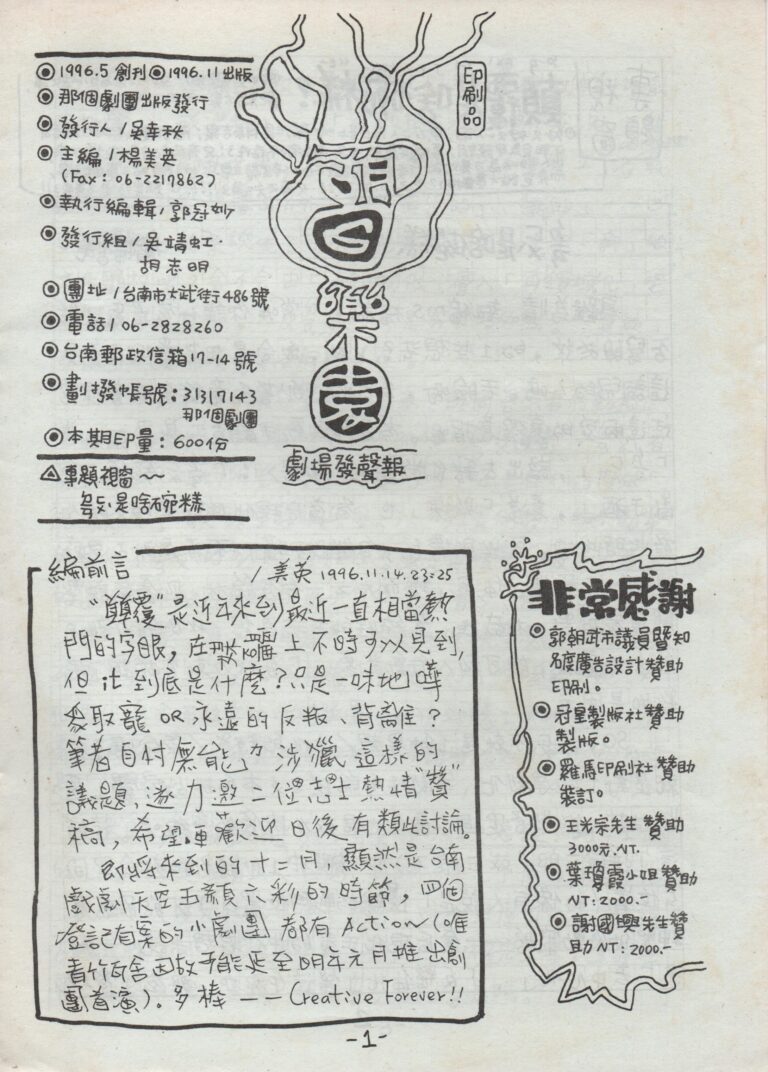 1996.5 創刊 1996.11 出版
那個劇團出版發行
發行人/吳幸秋
主編/楊美英
(Fax: 06-2217862)
執行編輯/郭冠妙
發行組/吳靖虹.
胡志明
團址/台南市大武街486號
電話/06-2828260
台南郵政信箱17-14號
劃撥帳號:31317143
那個劇團
本期EP量:600份
專題視窗~~
是啥碗糕
印刷品
樂園
劇場發聲報
編前言
/美英 1996.11.14.23:25
"顛覆"是近年來到最近一直相當熱
門的字眼,在 上不時可以見到,
但it到底是什麼?只是一味地嘩
眾取寵 OR 永遠的反叛、背離?
筆者自忖無能力涉獵這樣的
議題,遂力邀二位志士熱情"贊"
稿,希望 歡迎日後有類此討論。
即將來到的十二月,顯然是台南
戲劇天空五顏六彩的時節,四個
登記有案的小劇團都有Action(唯
青竹瓦舍因故可能延至明年元月推出創
團首演)。多棒——Creative Forever!!
非常感謝
郭朝武市議員暨知
名度廣告設計贊助
印刷。
冠皇製版社贊助
製版。
羅馬印刷社贊助
裝訂。
王光宗先生贊助
3000元.NT.
葉瓊霞小姐贊助
NT:2000.-
謝國興先生贊
助NT:2000.-
-1-